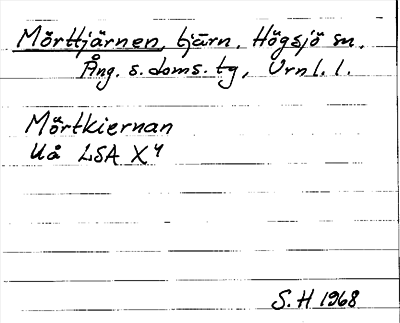 Mörttjärnen, tjärn. Högsjö sn.
Ång. s. doms. tg, Vrnl. l.
Mörtkiernan
Uå LSA X4
S. H 1968